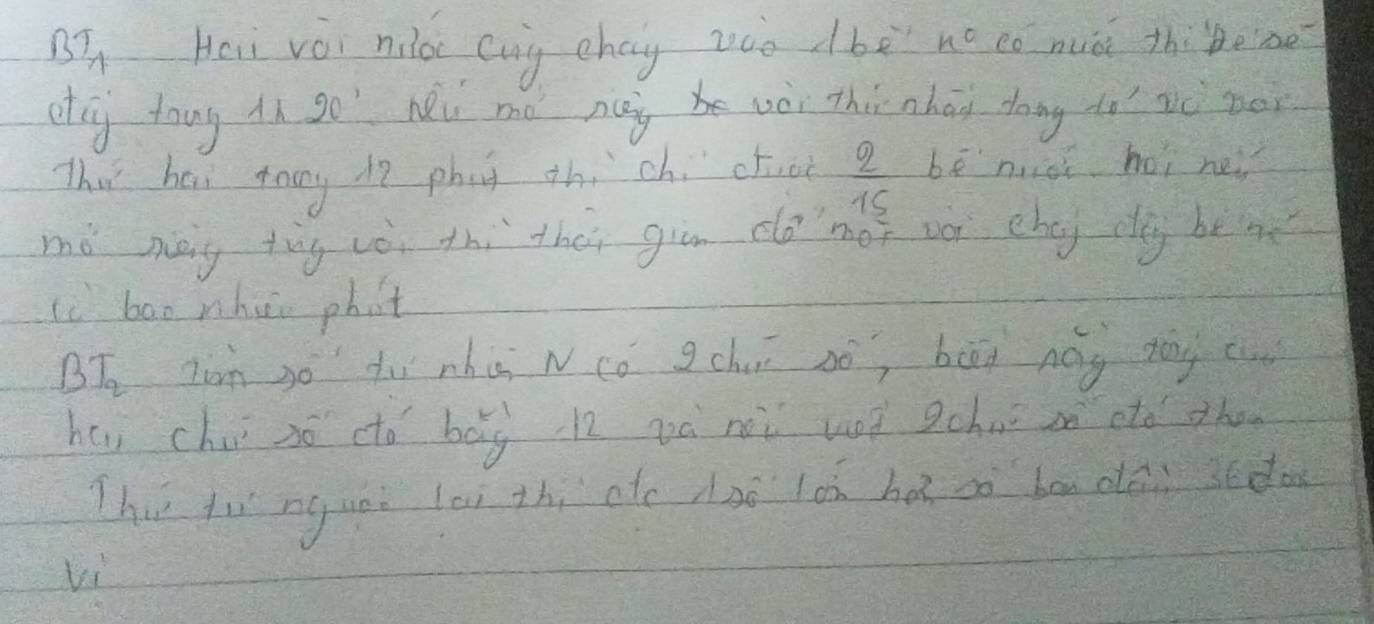 BT1 Hai vòi nước cùng chảy vào 1 bể no có nước thì bể sẽ
đầy trong 1h 20'. Nếu mở riêng vòi thứ nhất trong 10' và vòi
Thứ hai trong 12 phút thì chỉ được 2/15 bể nước. hỏi nếu
mở riêng từng vòi thì thời gian để một vòi chảy đầy bể
là bao nhiêu phút
BT2 Tìm số tự nhiên N có 2 chữ số, biết rằng tổng của
hai chữ số đó bằng 12 và nếu viết 2 chữ số đó theo
Thứ tự ngược lại thì đc 1 số lớn hơn số ban đầu 36 đơn
vị